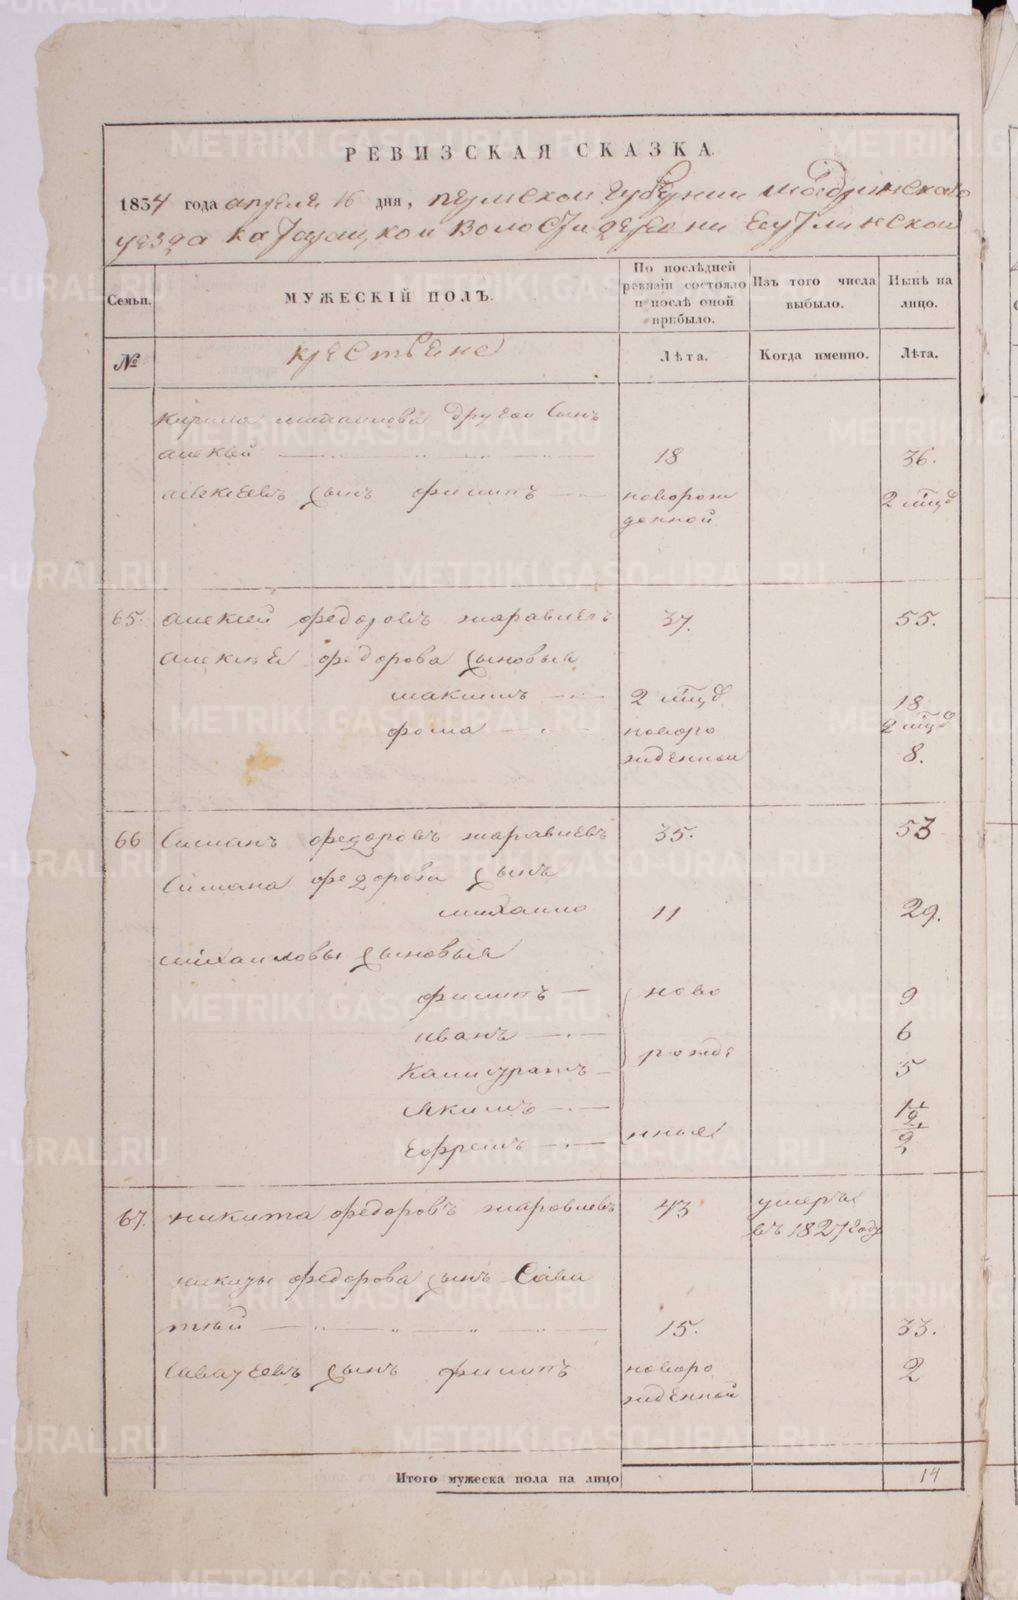 РЕВИЗСКАЯ СКАЗКА.
1834 года апреля 16 дня, пермской губернии шадринскаго
уезда Катайцкой волости деревни
Семьи.
МУЖЕСКІЙ ПОЛЪ.
По послѣдней ревизіи состояло и послѣ оной прибыло.
Изъ того числа выбыло.
Нынѣ на лицо.
№
крестьяне
Лѣта.
Когда именно.
Лѣта.
Кирила другой сынъ
алексей 18 36.
алексеевъ сынъ филипъ новорож 2 мцъ
денной
65. алексей федоровъ жаравлевъ 37. 55.
алексея федорова сыновья
максимъ 2 мцъ 18 2 мцъ
фома ново ро 8.
жденный
66 Симанъ федоровъ жаравлевъ 35. 53
Симана федорова сынъ
михаило 11 29.
михаиловы сыновья
филипъ ново 9
иванъ 6
Калистратъ рожде 5
Якимъ 1 1/2
Ефремъ нные 1/2
67. никита федоровъ жаравлевъ 43 умеръ
въ 1827 году
никиты федорова сынъ Сава
тей 15. 33.
Саватеевъ сынъ филипъ новоро 2
жденной
Итого мужеска пола на лицо 14
METRIKI.GASO-URAL.RU